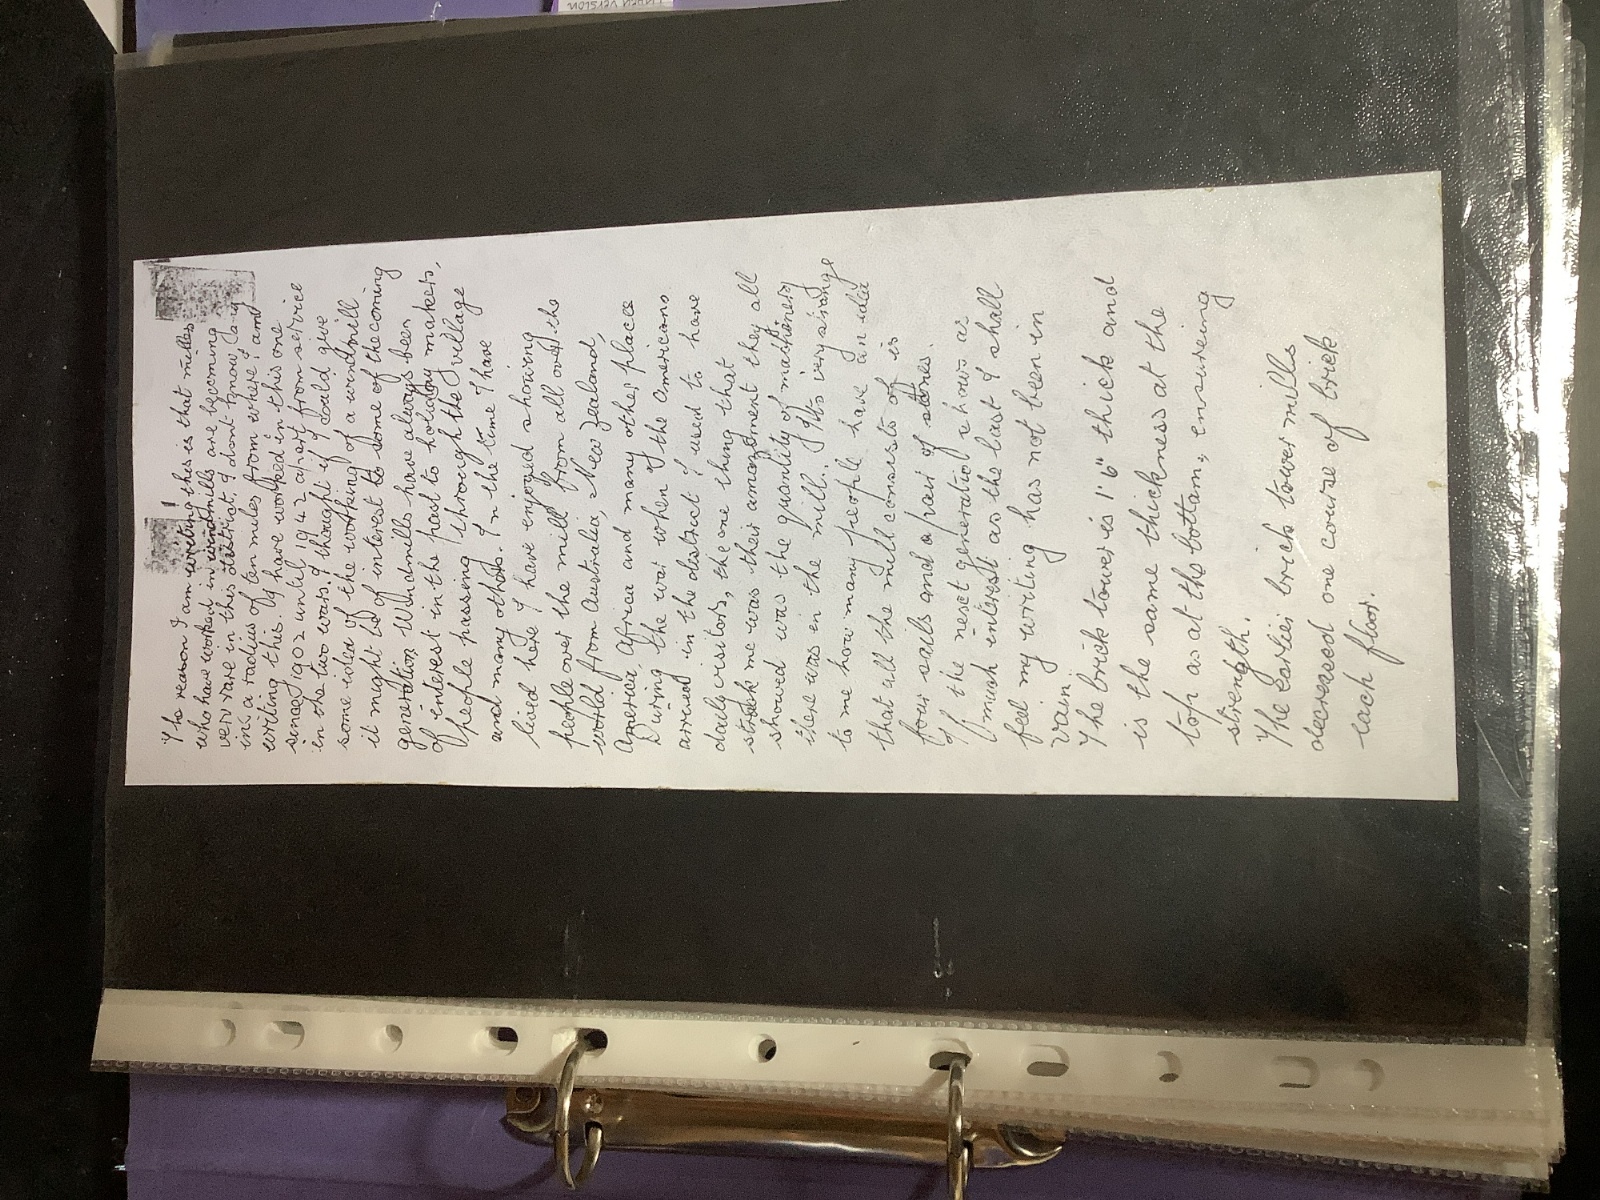 The reason I am writing this is that millers
who have worked in windmills are becoming
very rare in this district, I dont know any
in a radius of ten miles from where I am
writing this. I have worked in this one
since 1902 until 1942 apart from service
in the two wars. I thought if I could give
some idea of the working of a windmill
it might be of interest to some of the coming
generation. Windmills have always been
of interest in the past to holiday makers,
people passing through the village
and many others. In the time I have
lived here I have enjoyed showing
people over the mill from all over the
world from Australia, New Zealand,
America, Africa and many other places
During the war when the Americans
arrived in the district I used to have
daily visitors, the one thing that
struck me was their amazement they all
showed was the quantity of machinery
there was in the mill. Its very strange
to me how many people have an idea
that all the mill consists of is
four sails and a pair of stones.
If the next generation shows as
much interest as the last I shall
feel my writing has not been in
vain.
The brick tower is 1'6" thick and
is the same thickness at the
top as at the bottom, ensureing
strength.
The earlier brick tower mills
decreased one course of brick
each floor.
LINEN VERSION